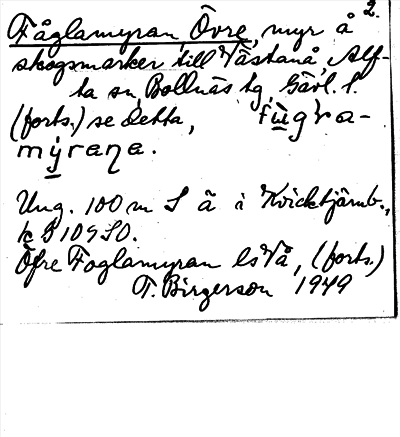 2.
Fåglamyran, Övre, myr å
skogsmarker till Västanå, Alf-
ta sn, Bollnäs tg, Gävl. l.
(forts.) se detta, fùgra-
mýraŋa.
Ung. 100 m S å i Kvicktjärnb.,
k J 109 SO.
Öfre Foglamyran ls Vå, (forts.)
T. Birgerson 1949